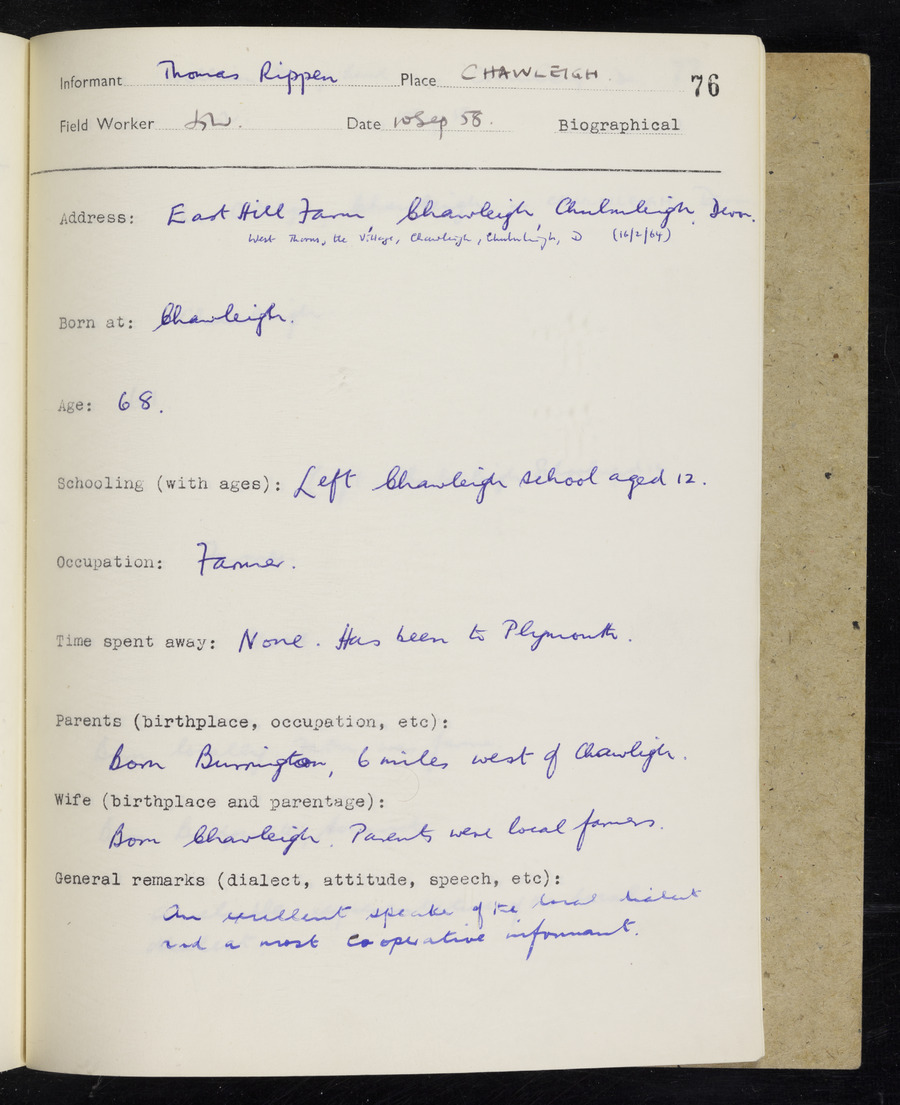 Informant Thomas Rippen Place CHAWLEIGH. 76
Field Worker Date 10 Sep 58. Biographical
Address: East Hill Farm Chawleigh Chulmleigh, Devon.
West Thorns, the Village, Chawleigh, Chulmleigh, D (16/2/64)
Born at: Chawleigh.
Age: 68.
Schooling (with ages): Left Chawleigh school aged 12.
Occupation: Farmer.
Time spent away: None. Has been to Plymouth.
Parents (birthplace, occupation, etc):
Born Burrington, 6 miles west of Chawligh.
Wife (birthplace and parentage):
Born Chawleigh. Parents were local farmers.
General remarks (dialect, attitude, speech, etc):
An excellent speaker of the local dialect
and a most cooperative informant.